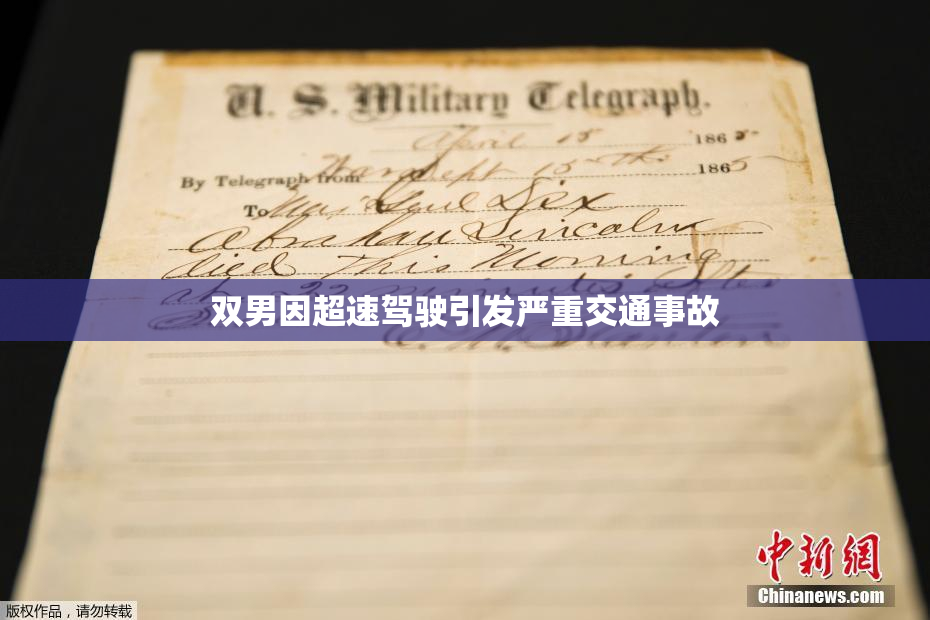 U. S. Military Telegraph.
April 15 1865
By Telegraph from War Dept 15th 1865
To Maj Genl Dix
Abraham Lincoln
died This Morning
at 22 minutes after
双男因超速驾驶引发严重交通事故
E. M. Stanton
中新網
Chinanews.com
版权作品,请勿转载